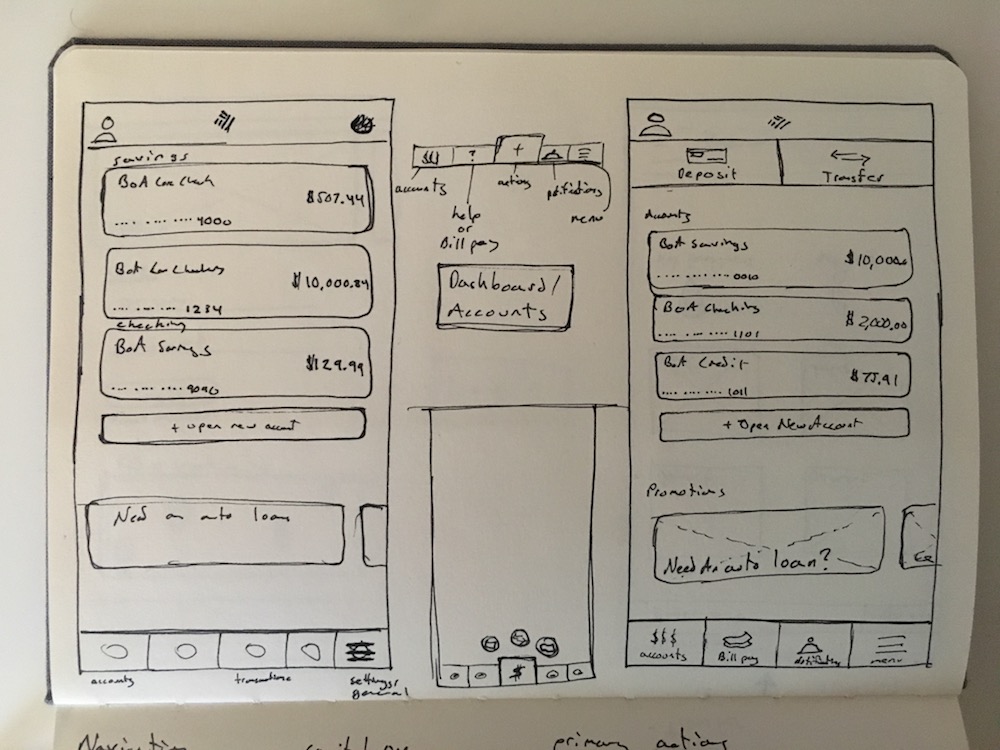 savings
BoA Core Check
$507.44
.... .... .... 4000
BoA Core Checking
$10,000.84
.... .... .... 1234
checking
BoA Savings
$129.99
.... .... .... 9090
+ open new account
Need an auto loan
accounts
transactions
settings/
general
$$$
?
+
accounts
actions
notifications
menu
help
or
Bill pay
Dashboard/
Accounts
$
Deposit
Transfer
Accounts
BoA Savings
$10,000.00
.... .... .... 0010
BoA Checking
$2,000.00
.... .... .... 1101
BoA Credit
$75.91
.... .... .... 1011
+ Open New Account
Promotions
Need An auto loan?
$$$
accounts
Bill pay
notifications
menu
Navigation
primary actions